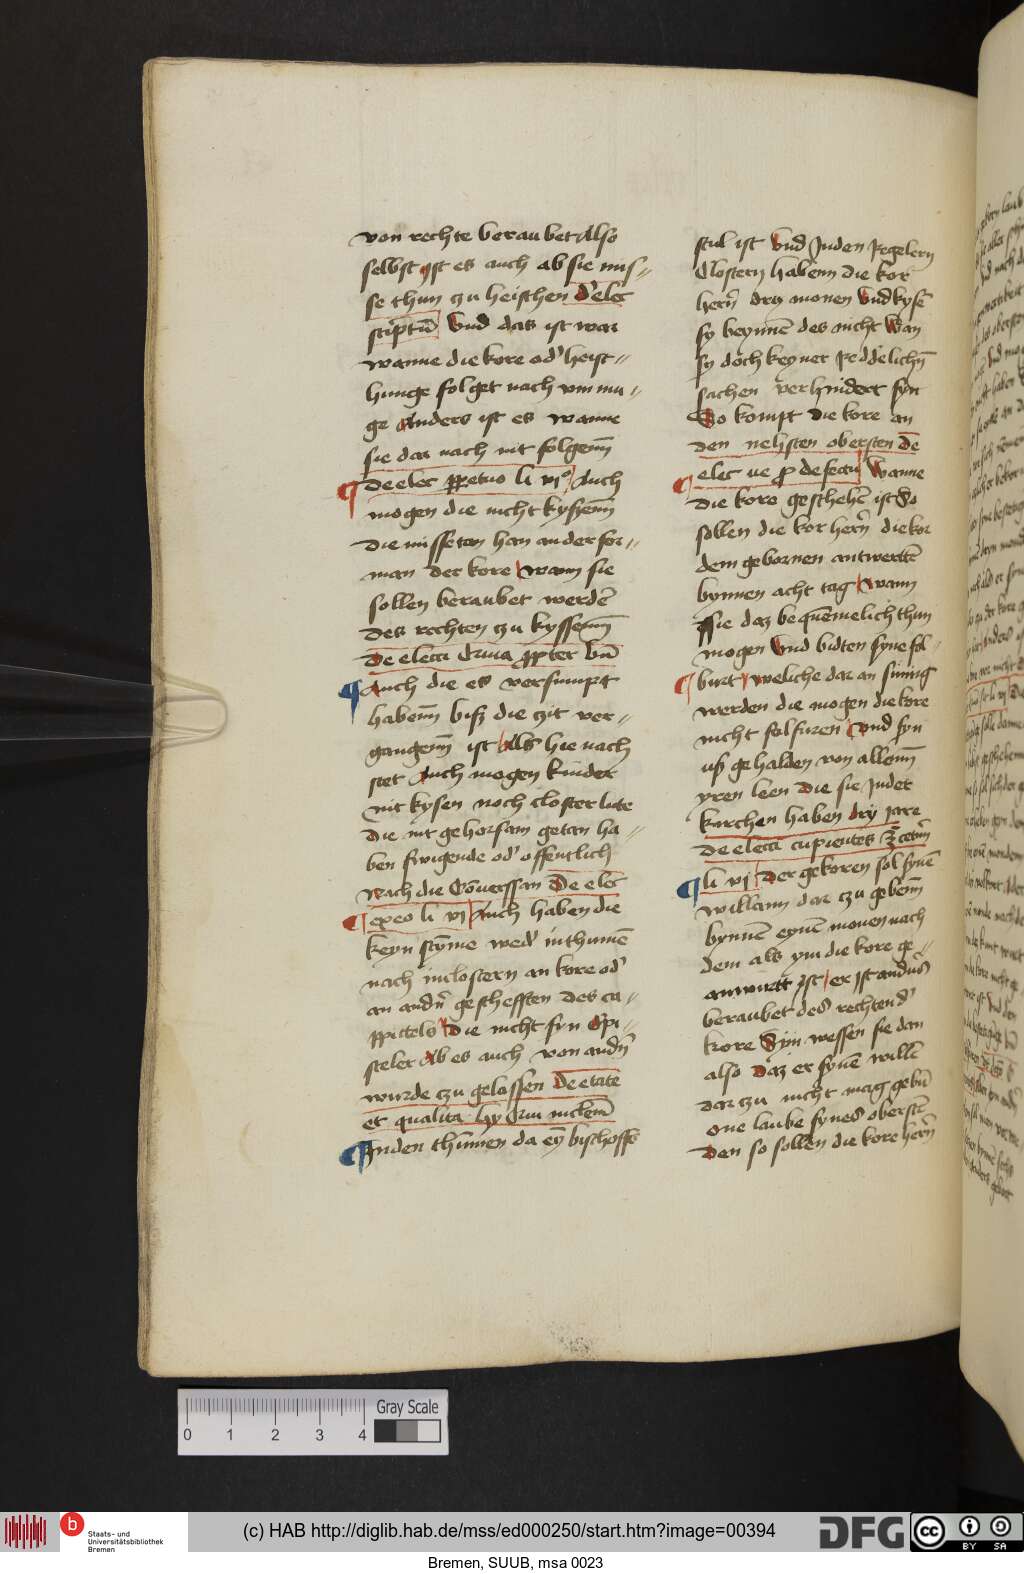 von rechte beraubet Also
selbst ist es auch ab sie mis⸗
se thun czu heischen d' elec
sc'ptū Vnd das ist war
wanne die kore od' heist⸗
hunge folget nach vm mu⸗
ge Anders ist es wanne
sie dar nach nit folgenn
De elec ꝑpetuo li vjº Auch
mogen die nicht kysenn
die missetan han ander for⸗
man der kore wann sie
sollen beraubet werdē
des rechten czu kyssenn
De elect
Auch die es versumpt
habenn bisz die zit ver⸗
gangenn ist Als hie nach
stet Auch mogen kinder
nit kysen noch closter lute
die nit gehorsam getan ha⸗
ben swigende od' offentlich
Nach die De elec
exeo li vj Auch haben die
keyn stȳme wed' in thumē
nach in clostern an kore od'
an andn̄ geschefften des ca⸗
pittels Die nicht syn Epi⸗
steler Ab es auch von andn̄
wurde czu gelassen De etate
et qualita
Inden thūmen da eȳ bischoffs
stul ist Vnd Jnden Regelern
Clostern habenn die kor
hern̄ dry monen Vnd kysē
sy beynnē des nicht Wan
sy doch keyner Reddelichn̄
sachen verhindert syn
So kompt die kore an
den nehsten obersten De
elec ne ꝓ defectu Wanne
die kore geschehē ist So
sollen die kor hern̄ die kor
dem gebornen antwertē
bynnen acht tag Wann
sie daz bequēmelich thun
mogen Vnd bidten syne fol⸗
burt weliche dar an sumig
werden die mogen die kore
nicht folfuren Vnd syn
usz gehalden von allenn
yren leen die sie Jnder
karchen haben dry jare
De elect cupientes
li vj Der gekoren sol synē
willann dar czu gebenn
bynnē eynē monen nach
dem als ym die kore ge⸗
antwurtt ist er ist anders
beraubet des rechten d'
kore Syn wessen sie dan
also Daz er synē willē
dar czu nicht mag gebn̄
one laube synes oberstē
Den so sollen die kore hern̄
0 1 2 3 4
Gray Scale
b
Staats- und
Universitätsbibliothek
Bremen
(c) HAB http://diglib.hab.de/mss/ed000250/start.htm?image=00394
DFG
cc
BY SA
Bremen, SUUB, msa 0023